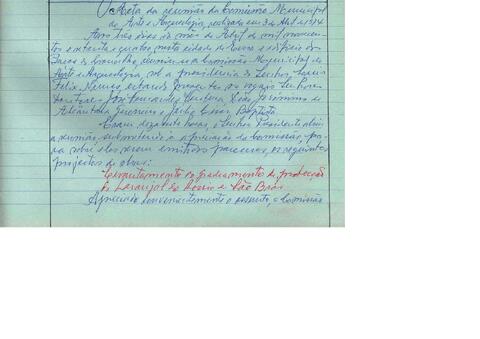 Acta da reunião da Comissão Municipal
de Arte e Arqueologia, realizada em 3 de Abril de 1974
Aos três dias do mês de Abril de mil novecentos
e setenta e quatro, nesta cidade de e edifício dos
Paços do Concelho, reuniu a Comissão Municipal de
Arte e Arqueologia, sob a presidência do Senhor
Félix estando presentes os vogais Senhores
José Fernandes João Jerónimo de
Alcântara e Baptista.
Eram dezassete horas, o Senhor Presidente abriu
a reunião, submetendo à apreciação da Comissão, para
sobre eles serem emitidos pareceres, os seguintes
projectos de obras:
do gradeamento de protecção
do Laranjal do Rossio de São Brás
Apreciado convenientemente o assunto, a Comissão